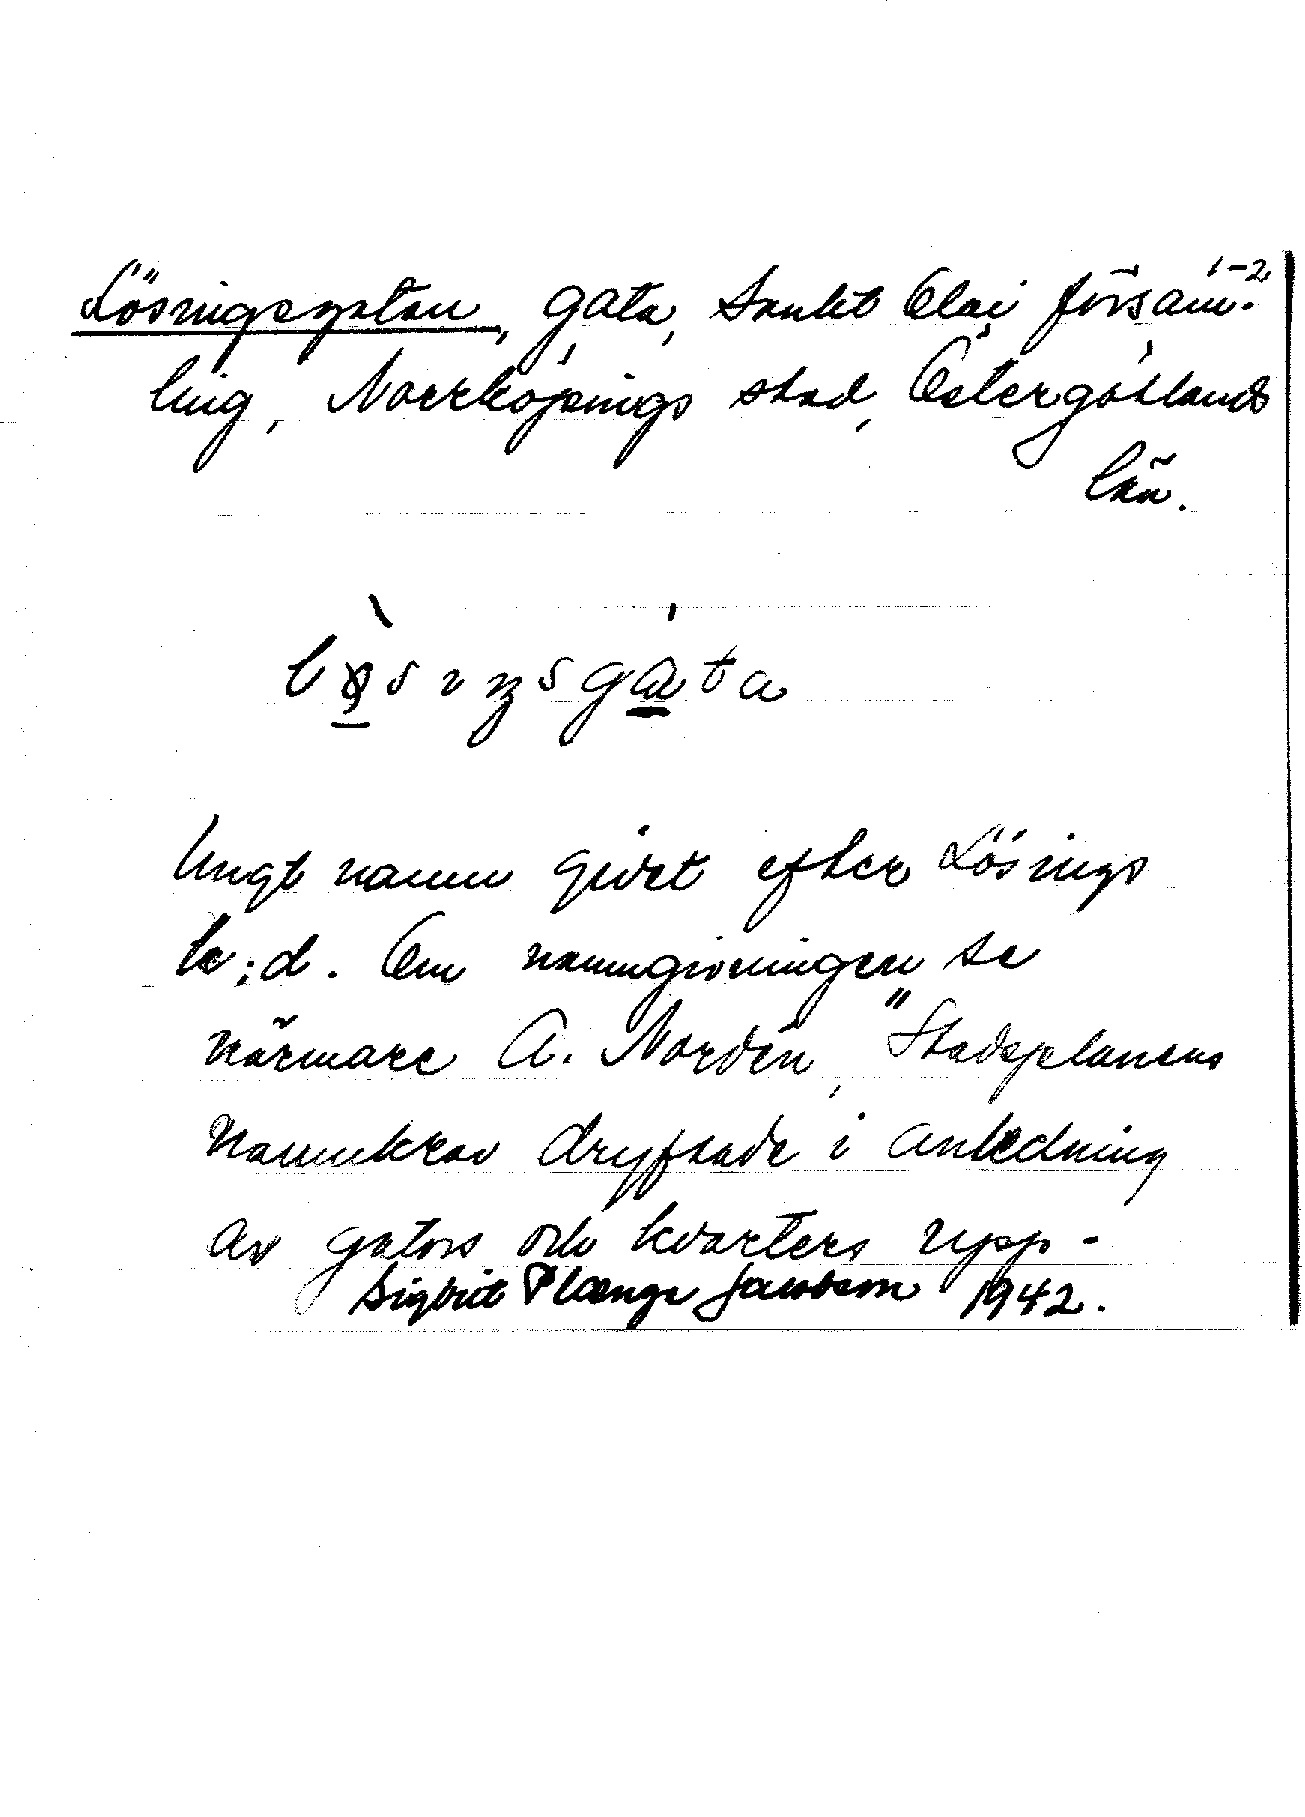 1-2.
Lösingsgatan, gata, Sankt Olai försam-
ling, Norrköpings stad, Östergötlands
län.
Ungt namn givet efter Lösings
hd. Om namngivningen se
närmare A. Nordén, "Stadsplanens
namnkrav dryftade i anledning
av gators och kvarters upp-
Sigbrit Plænge Jacobson 1942.